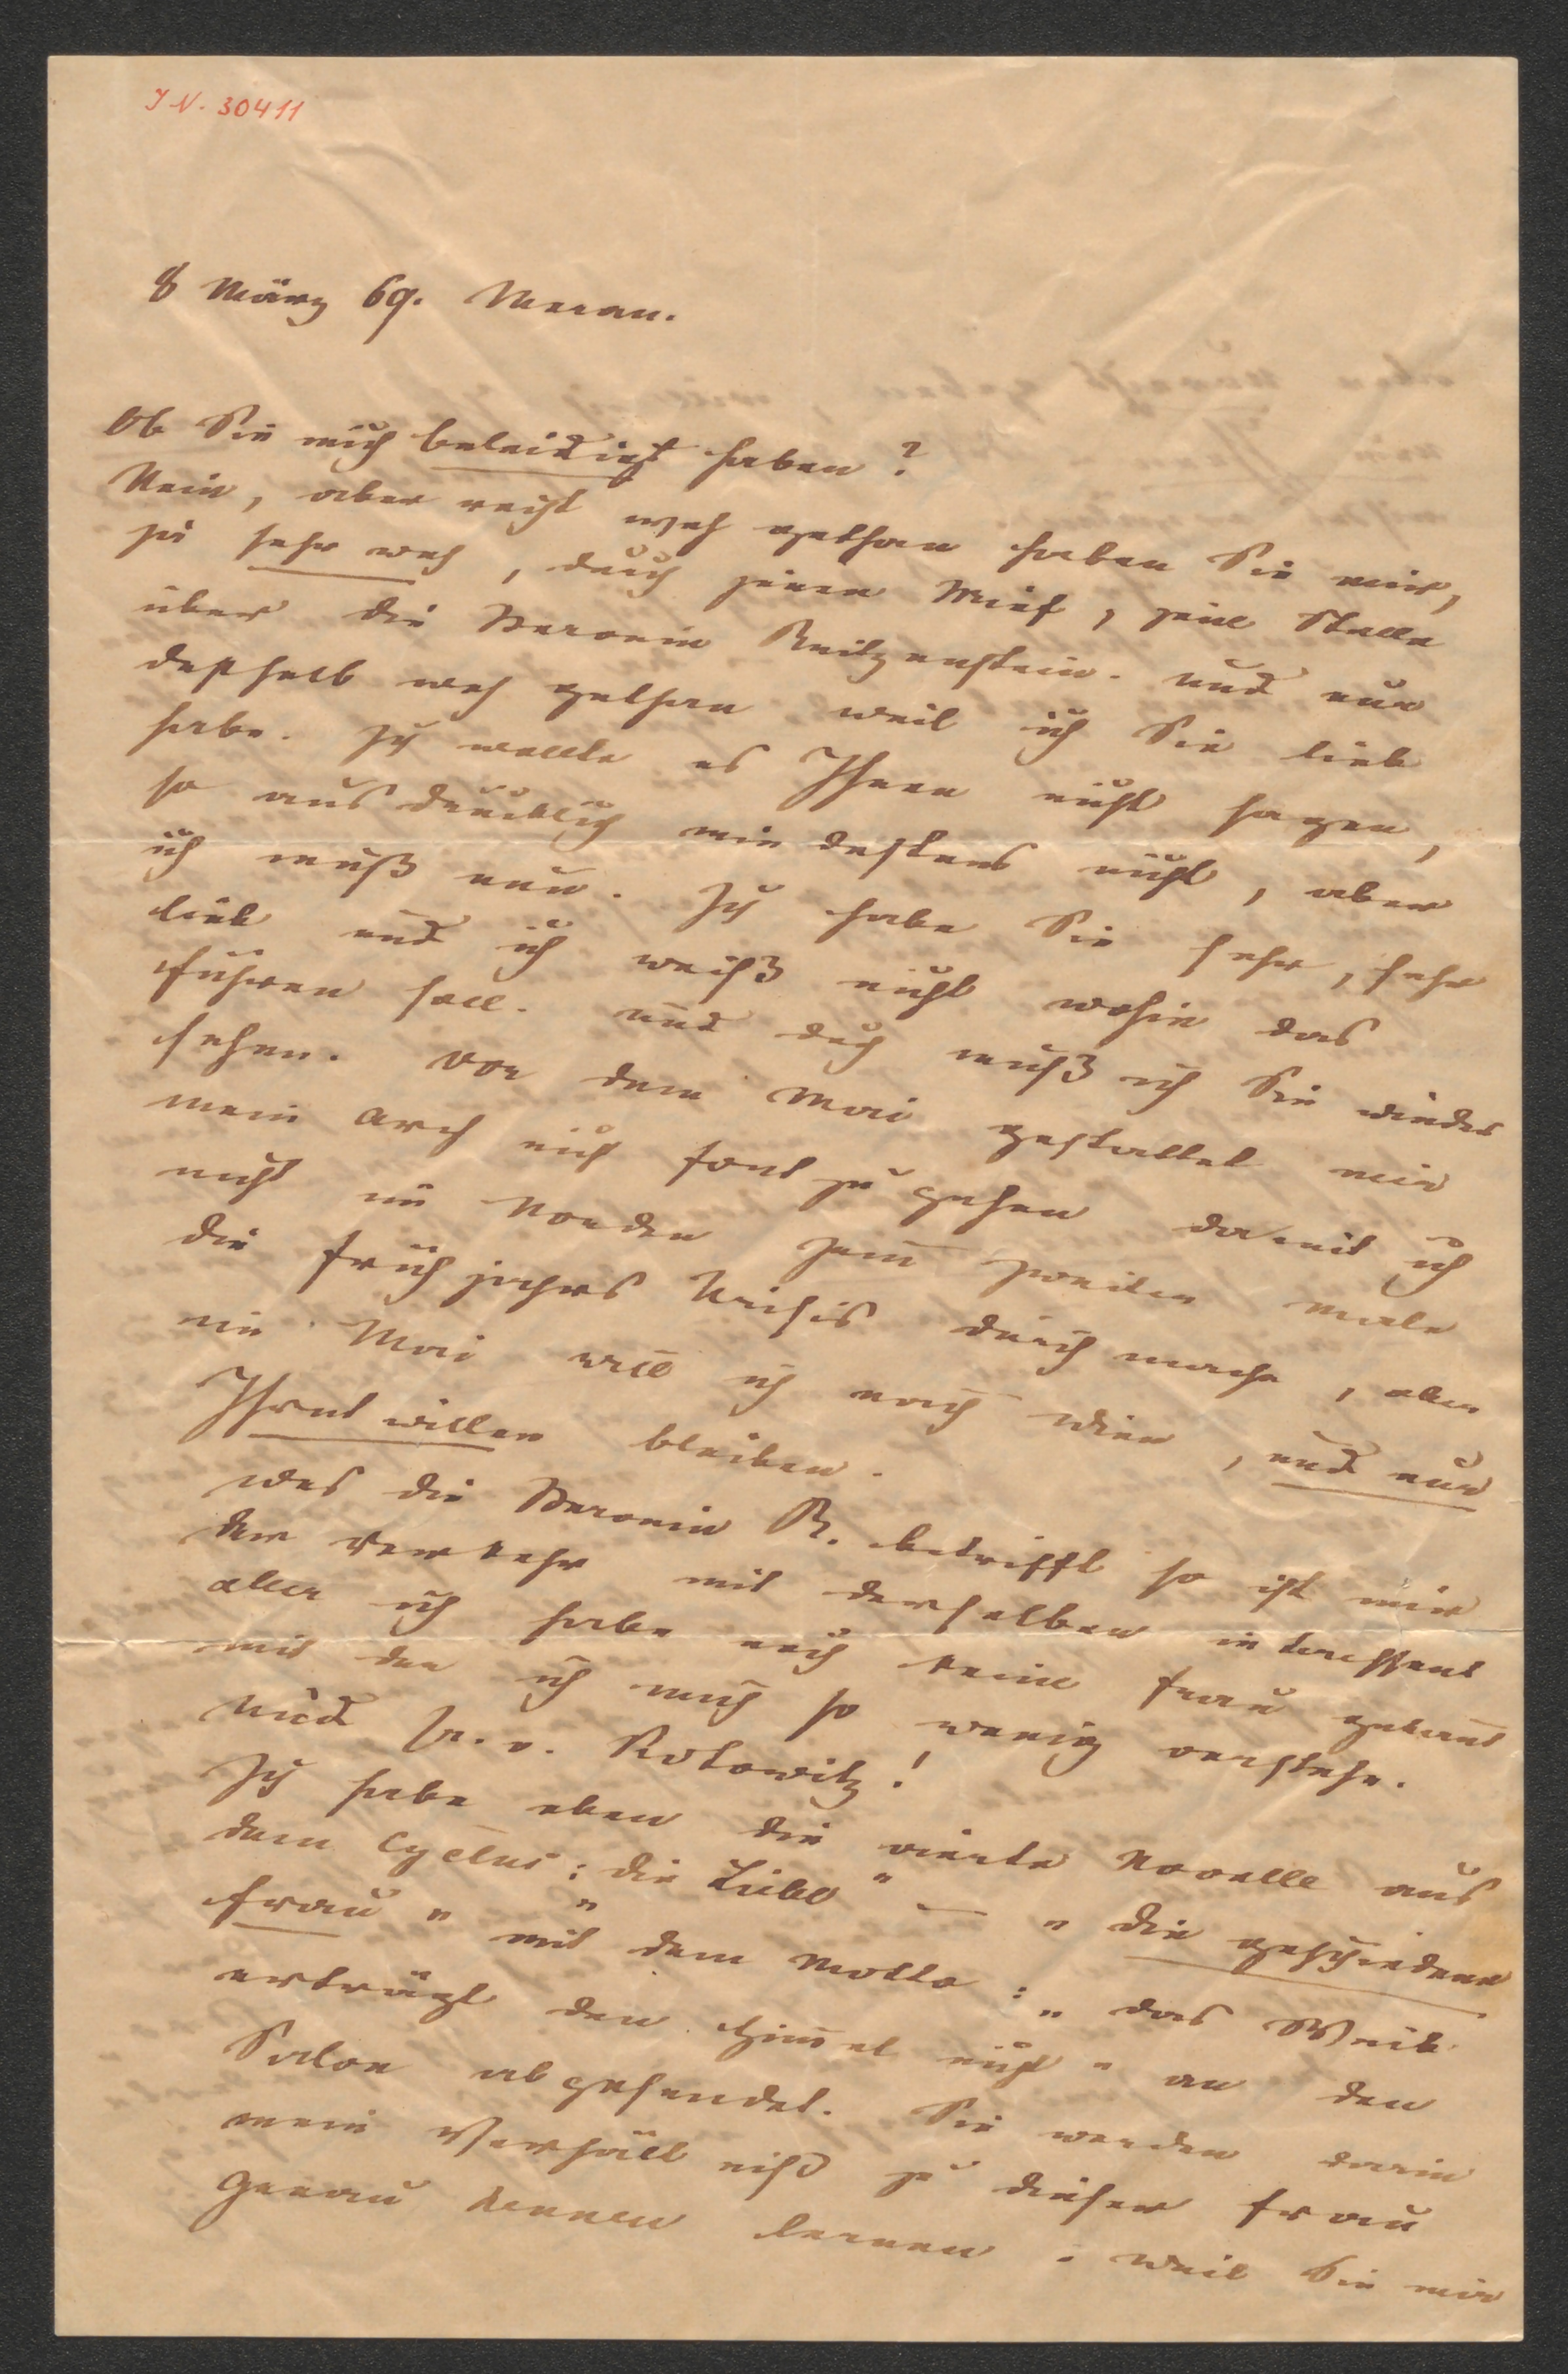 I N. 30411
8 März 69. Meran.
Ob Sie mich beleidigt haben?
Nein, aber recht weh gethan haben Sie mir,
ja sehr weh, durch jenen Brief, jene Stelle
über die Baronin Reitzenstein. Und nur
deßhalb weh gethan weil ich Sie lieb
habe. Ich wollte es Ihnen nicht sagen,
so ausdrücklich mindestens nicht, aber
ich muß nun. Ich habe Sie sehr, sehr
lieb und ich weiß nicht wohin das
führen soll. Und doch muß ich Sie wieder
sehen. Vor dem Mai gestattet mir
mein Arzt nicht fort zu gehen damit ich
nicht im Norden zum zweiten Male
die Frühjahrs Krisis durch mache, aber
im Mai will ich nach Wien, und nur
Ihrethwillen bleiben.
Was die Baronin R. betrifft so ist mir
der Verkehr mit derselben interessant
aber ich habe noch keine Frau gekannt
mit der ich mich so wenig verstehe.
Und Fr. v. Kotowitz!
Ich habe eben die vierte Novelle aus
dem Cyclus: „die Liebe" — „die geschiedene
Frau" mit dem Motto: „das Weib
erträgt den Himmel nicht" an den
Salon abgesendet. Sie werden darin
mein Verhältniß zu dieser Frau
genau kennen lernen. Weil Sie mir